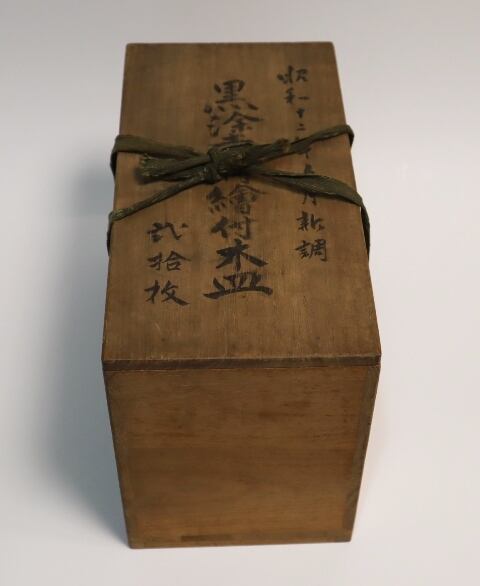 昭和十二年月新調
黒塗繪付木皿
弐拾枚